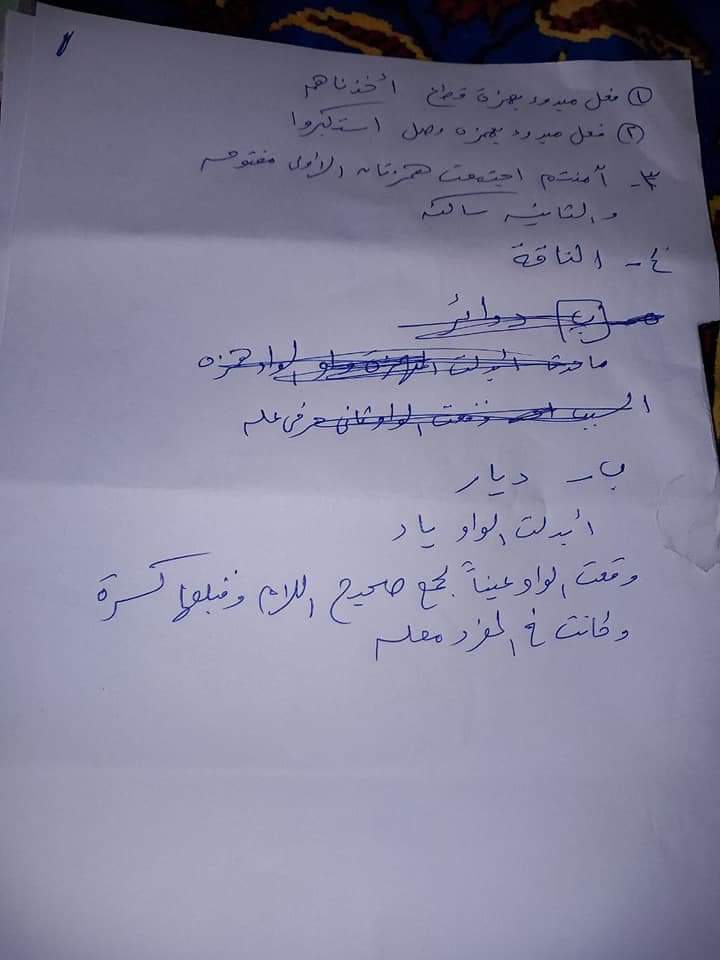 ١) فعل مبدوء بهمزة قطع أخذناهم
٢) فعل مبدوء بهمزه وصل استكبروا
٣- آمنتم اجتمعت همزتان الاولى مفتوحه
والثانيه ساكنه
٤- الناقة
ب دوائر
أبدلت الواو همزه
السبب وقعت الواو ثانى حرفى عله
ب - ديار
أبدلت الواو ياء
وقعت الواو عيناً لجمع صحيح اللام وقبلها كسرة
وكانت في المفرد معله